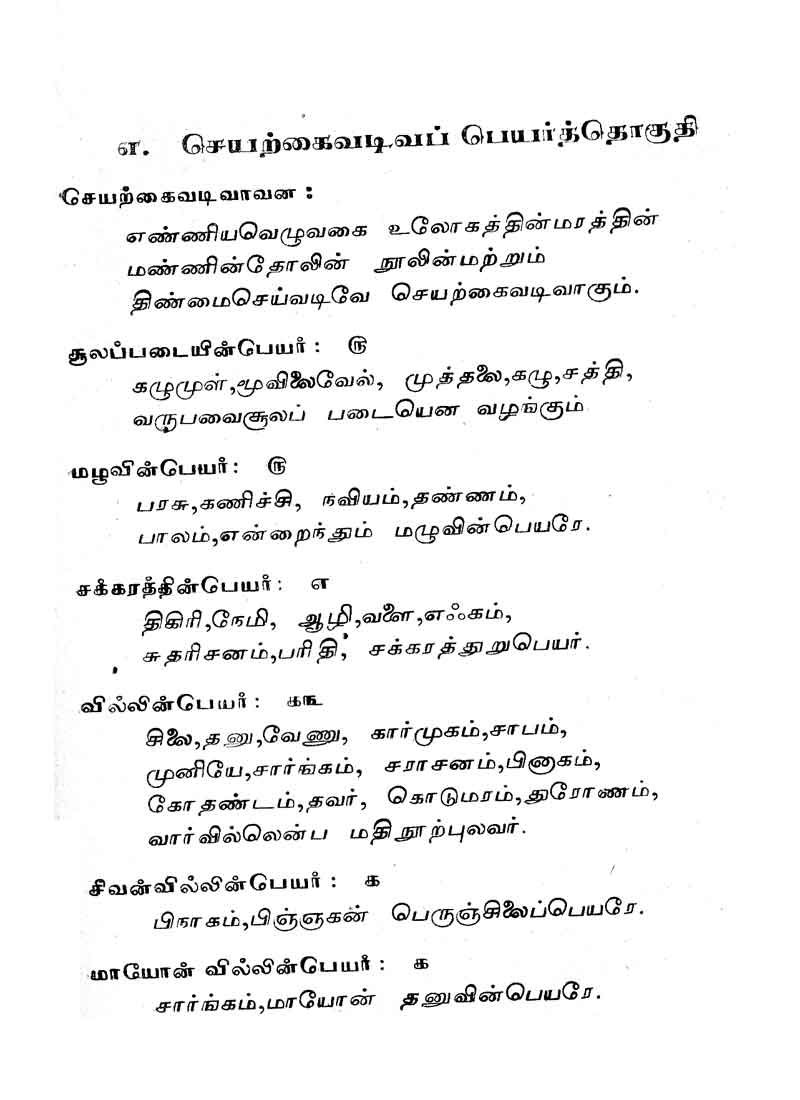 எ. செயற்கைவடிவப் பெயர்த்தொகுதி
செயற்கைவடிவாவன :
எண்ணியவெழுவகை உலோகத்தின்மரத்தின்
மண்ணின்தோலின் நூலின்மற்றும்
திண்மைசெய்வடிவே செயற்கைவடிவாகும்.
சூலப்படையின்பெயர் : ௫
கழுமுள்,மூவிலைவேல், முத்தலை,கழு,சத்தி,
வருபவைசூலப் படையென வழங்கும்
மழுவின்பெயர் : ௫
பரசு,கணிச்சி, நவியம்,தண்ணம்,
பாலம்,என்றைந்தும் மழுவின்பெயரே.
சக்கரத்தின்பெயர் : எ
திகிரி,நேமி, ஆழி,வளை,எஃகம்,
சுதரிசனம்,பரிதி, சக்கரத்துறுபெயர்.
வில்லின்பெயர் : ௧௩
சிலை,தனு,வேணு, கார்முகம்,சாபம்,
முனியே,சார்ங்கம், சராசனம்,பினாகம்,
கோதண்டம்,தவர், கொடுமரம்,துரோணம்,
வார்வில்லென்ப மதிநூற்புலவர்.
சிவன்வில்லின்பெயர் : ௧
பிநாகம்,பிஞ்ஞகன் பெருஞ்சிலைப்பெயரே.
மாயோன் வில்லின்பெயர் : ௧
சார்ங்கம்,மாயோன் தனுவின்பெயரே.